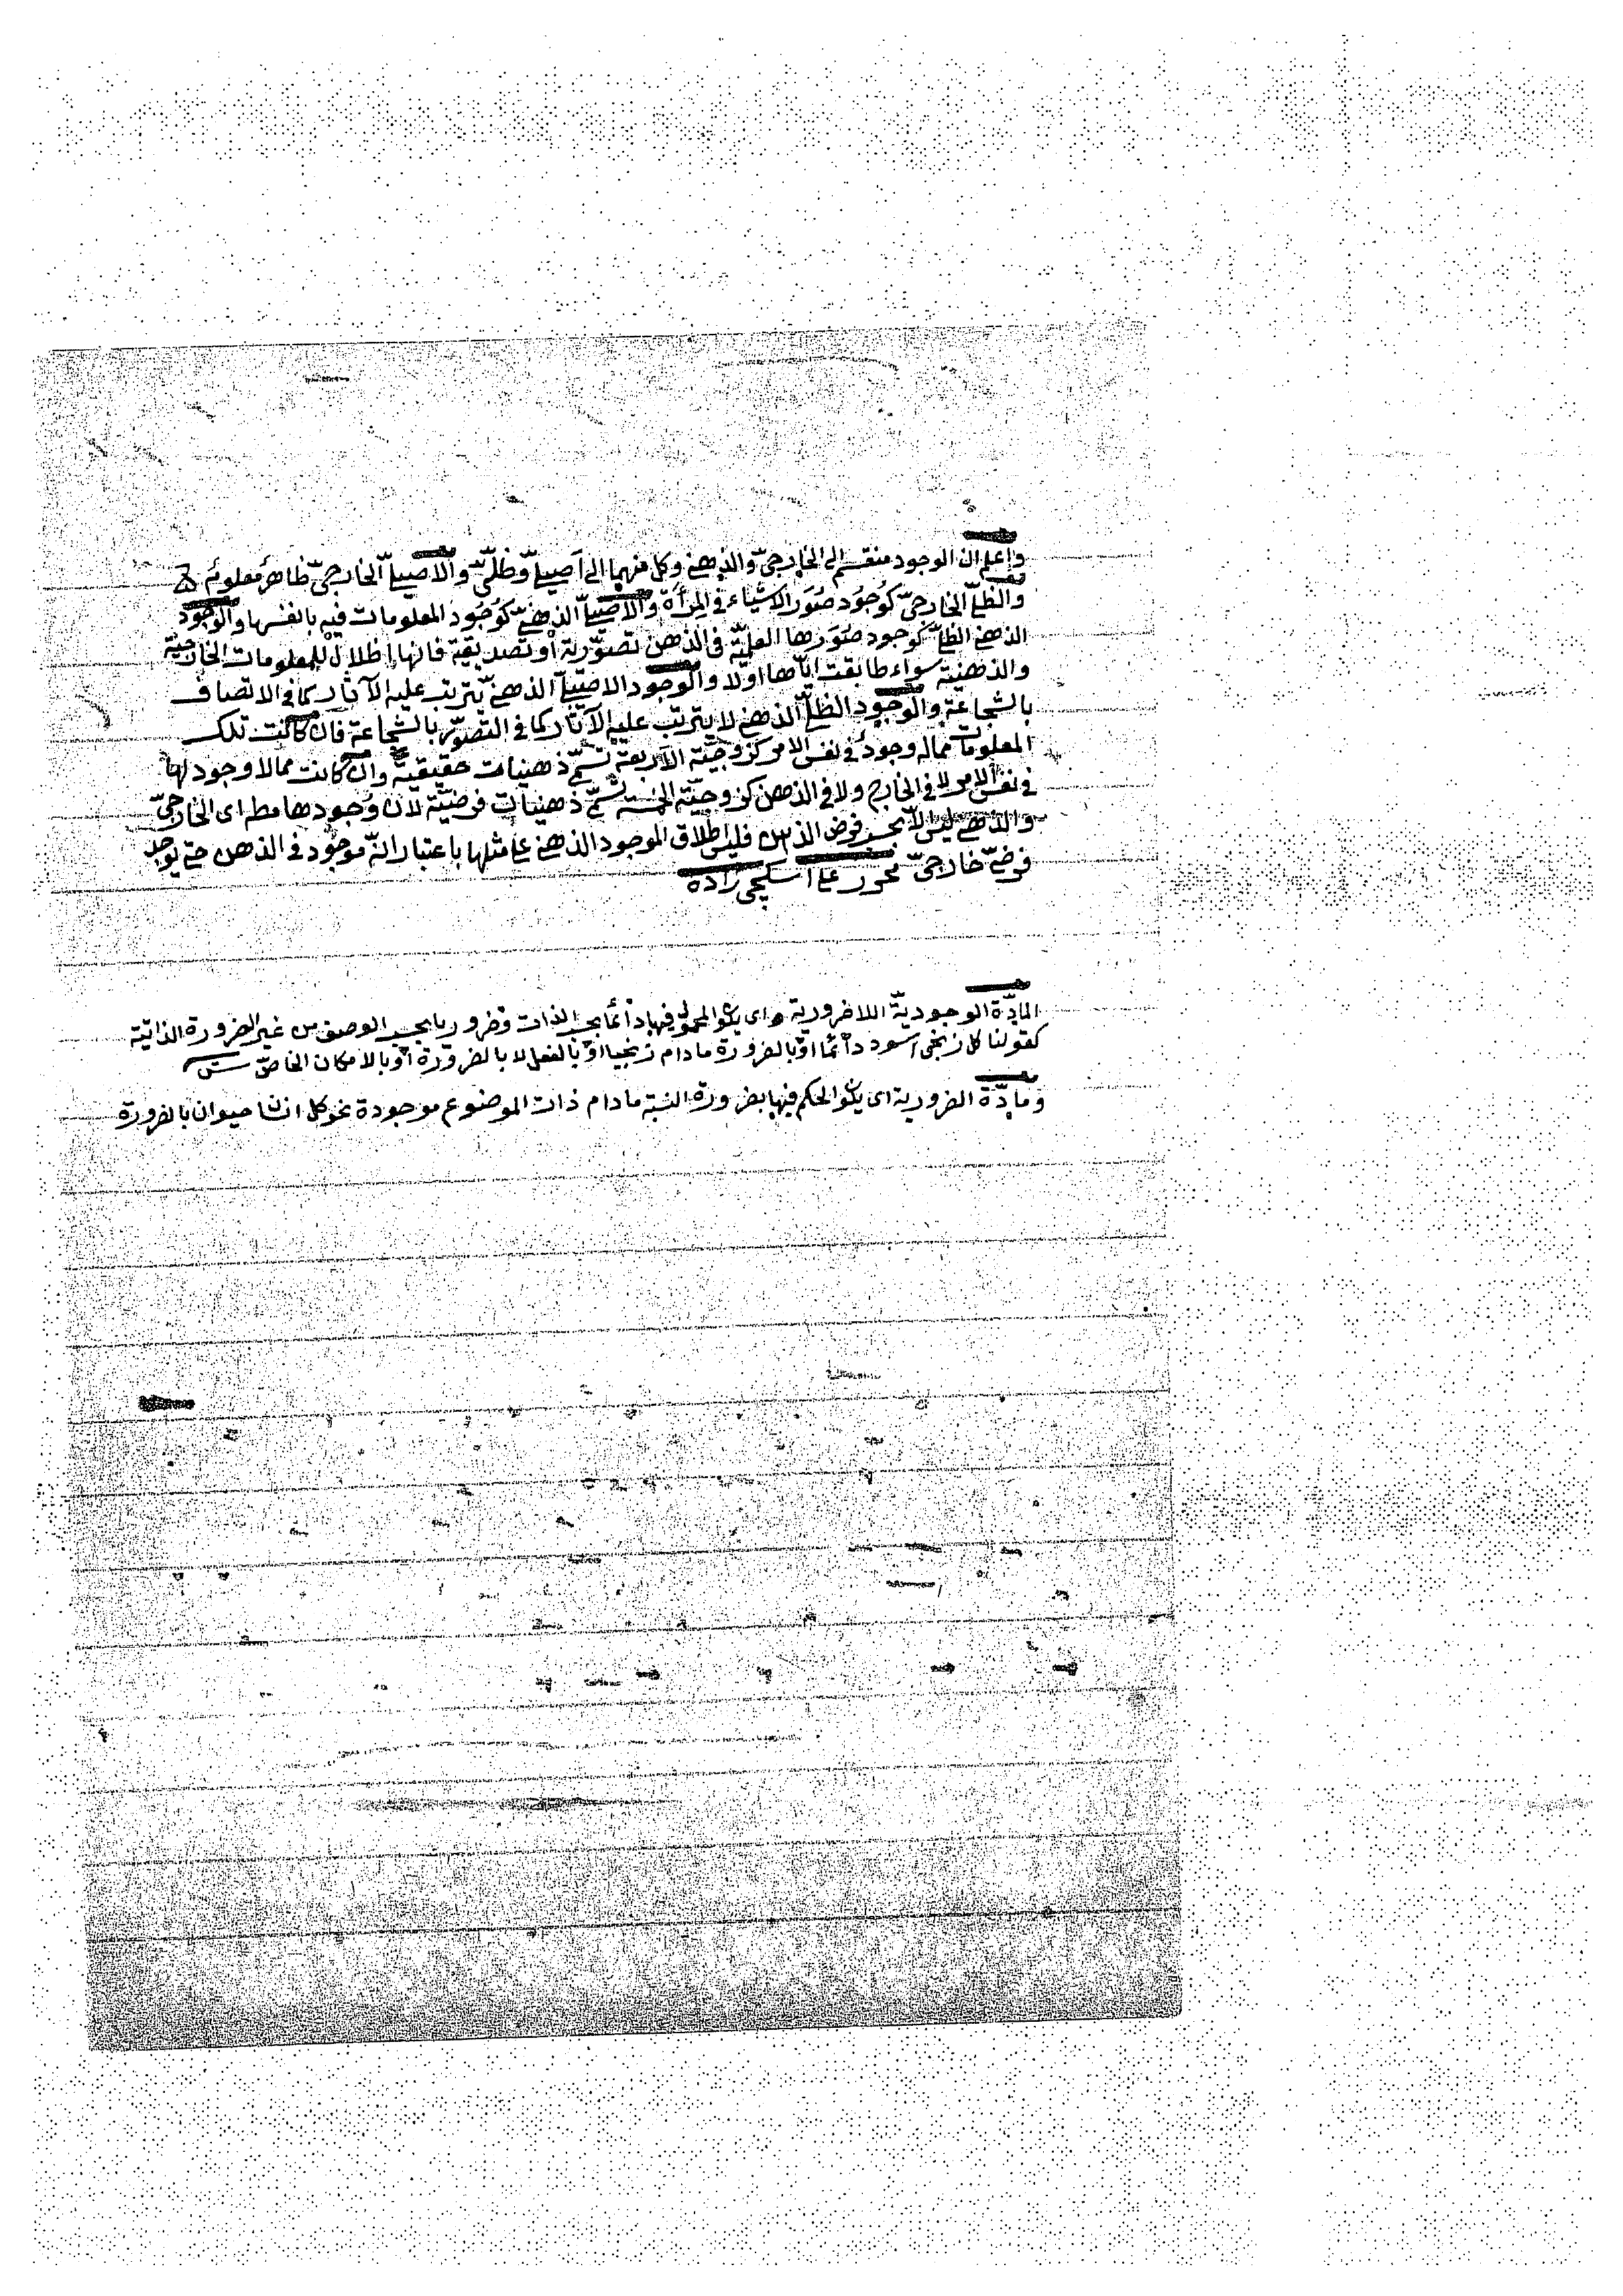 واعلم ان الوجود منقسم الى الخارجىّ والذهنى وكل منهما الى اَصيلىّ وظلّىّ والاَصيلىّ الخارجىّ ظاهرٌ معلومٌ
والظلىّ الخارجىّ كوُجُود صُوَر الاشياء فى المِرأة والاصيلىّ الذهنىّ كوُجُود المعلومات فيه بانفسها والوجود
الذهنى الظلىّ كوجود صُوَرها العلميّة فى الذهن تصوّريّة او تصديقيّة فانها اظلال للمعلومات الخارجيّة
والذهنيّة سواء طابقت ايّاها اولا والوجود الاصيلىّ الذهنىّ يترتب عليه الآثار كما فى الاتصاف
بالشجاعة والوجود الظلىّ الذهنى لا يترتب عليه الآثار كما فى التصوّر بالشجاعة فان كانت تلك
المعلومات مماله وجودٌ فى نفس الامر كزوجيّة الاربعة تسمّى ذهنيات حقيقيّة وان كانت ممالا وجود لها
فى نفس الامر لا فى الخارج ولا فى الذهن كزوجيّة الخمسة تسمّى ذهنيات فرضيّة لان وُجودها مط اى الخارجىّ
والذهنى ليس الّا بحسب فرض الذهن فليس اطلاق الموجود الذهنى على مثلها باعتبار انّه موجُود فى الذهن حتى يوجد
فرضىّ خارجىّ محرر على اسكيجى زاده
المادّة الوجوديّة اللاضرورية اى يكون المحمول فيها دائما بحسب الذات وضروريا بحسب الوصف من غير الضرورة الذاتيّة
كقولنا كل زنجى اسود دائما او بالضرورة مادام زنجيا او بالفعل لا بالضرورة او بالامكان الخاص
ومادّة الضرورية اى يكون الحكم فيها بضرورة النسبة مادام ذات الموضوع موجودة نحو كل انسان حيوان بالضرورة